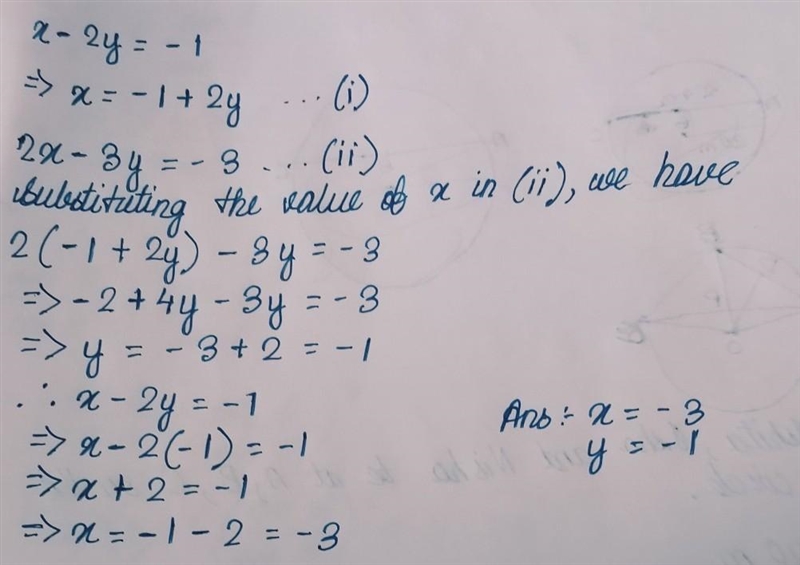 x - 2y = -1
⇒ x = -1 + 2y ...(i)
2x - 3y = -3 ...(ii)
substituting the value of x in (ii), we have
2(-1 + 2y) - 3y = -3
⇒ -2 + 4y - 3y = -3
⇒ y = -3 + 2 = -1
∴ x - 2y = -1
⇒ x - 2(-1) = -1
⇒ x + 2 = -1
⇒ x = -1 - 2 = -3
Ans :- x = -3
y = -1